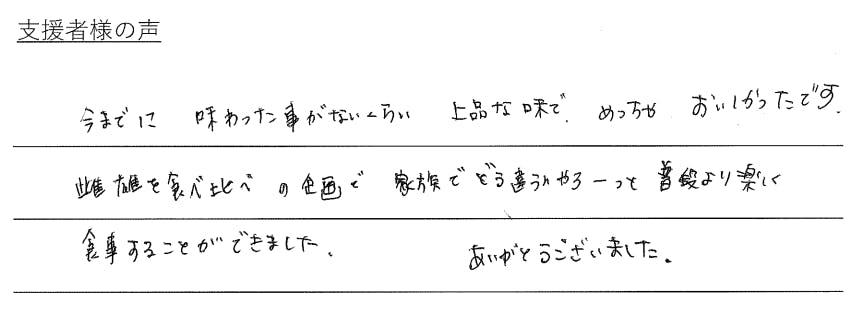 支援者様の声
今までに 味わった事がないくらい 上品な味で、めっちゃ おいしかったです。
雌雄を食べ比べの企画で 家族でどう違うんやろーっと 普段より楽しく
食事することができました。 ありがとうございました。